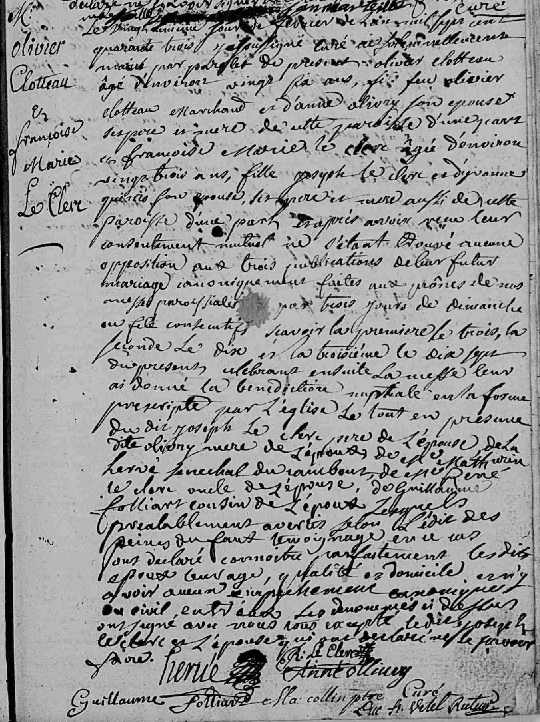 M
olivier
Clotteau
Et
françoise
Marie
Le Clerc
Curé
Le vingt jour de fevrier de L'an mil sept cent
quarante trois Je soussigné curé ai solemnellement
marié par parolles de present olivier clotteau
âgé d'environ vingt six ans, fils feu olivier
clotteau Marchand et d'anne olivry son epouse
ses pere et mere de cette paroisse d'une part
et françoise Marie le clerc âgée d'environ
vingt trois ans, fille joseph le clerc et d'yvonne
son epouse ses pere et mere aussi de cette
paroisse d'une part et après avoir receu leur
consentement mutuel ne s'étant trouvé aucune
opposition aux trois publications de leur futur
mariage canoniquement faites aux prônes de nos
messes paroissiales par trois jours de dimanche
ou fête consecutifs sçavoir la premiere le trois, la
seconde Le dix et la troisième le dix sept
du present, celebrant ensuite La messe leur
ai donné la benediction nuptiale en la forme
prescripte par L'église Le tout en presence
du dit joseph Le clerc pere de L'épouse de La
dite olivry mere de L'époux de Mathurin
hervé senechal du de René
le clerc oncle de L'épouse, de Guillaume
folliart cousin de L'époux Lesquels
prealablement avertis selon l'édit des
peines du faux temoignage en ce cas
ont declaré connoitre parfaitement les dits
epoux leur age, qualité et domicile et n'y
avoir aucun empêchement canonique
ou civil entr'eux Les denommés ci dessus
ont signé avec nous excepté le dit joseph
le clerc et L'épouse qui ont declaré ne le pouvoir
faire.
hervé R. Le Clerc
Anne ollivry
Guillaume folliart
Curé